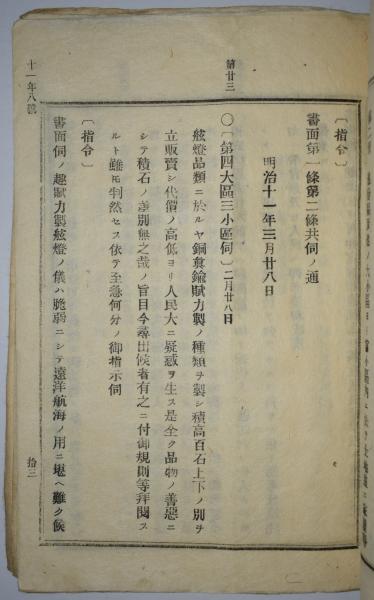 〔指令〕
書面第一條第二條共伺ノ通
明治十一年三月廿八日
〇〔第四大區三小區伺〕二月廿八日
舷燈品類ニ於ルヤ銅眞鍮賦力製ノ種類ヲ製シ積高百石上下ノ別ヲ
立販賣シ代價ノ高低ヨリ人民大ニ疑惑ヲ生ス是全ク品物ノ善惡ニ
シテ積石ノ差別無之哉ノ旨目今尋出候者有之ニ付御規則等拜閲ス
ルト雖𪜈判然セス依テ至急何分ノ御指示伺
〔指令〕
書面伺ノ趣賦力製舷燈ノ儀ハ脆弱ニシテ遠洋航海ノ用ニ堪ヘ難ク候
第廿三
十一年八號
拾三